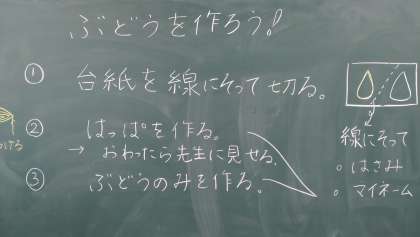 ぶどうを作ろう!
① 台紙を線にそって切る。
② はっぱを作る。
→ おわったら先生に見せる。
③ ぶどうのみを作る。
線にそって
○ はさみ
○ マイネーム